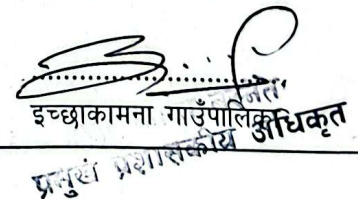 इच्छाकामना गाउँपालिका
प्रमुख प्रशासकीय अधिकृत